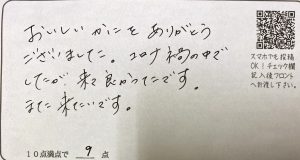 おいしいかにを ありがとう
ございました。コロナ禍の中で
したが、来て良かったです。
また来たいです。
10点満点で 9 点
スマホでも投稿
OK!チェック欄
記入後フロント
へお渡し下さい。